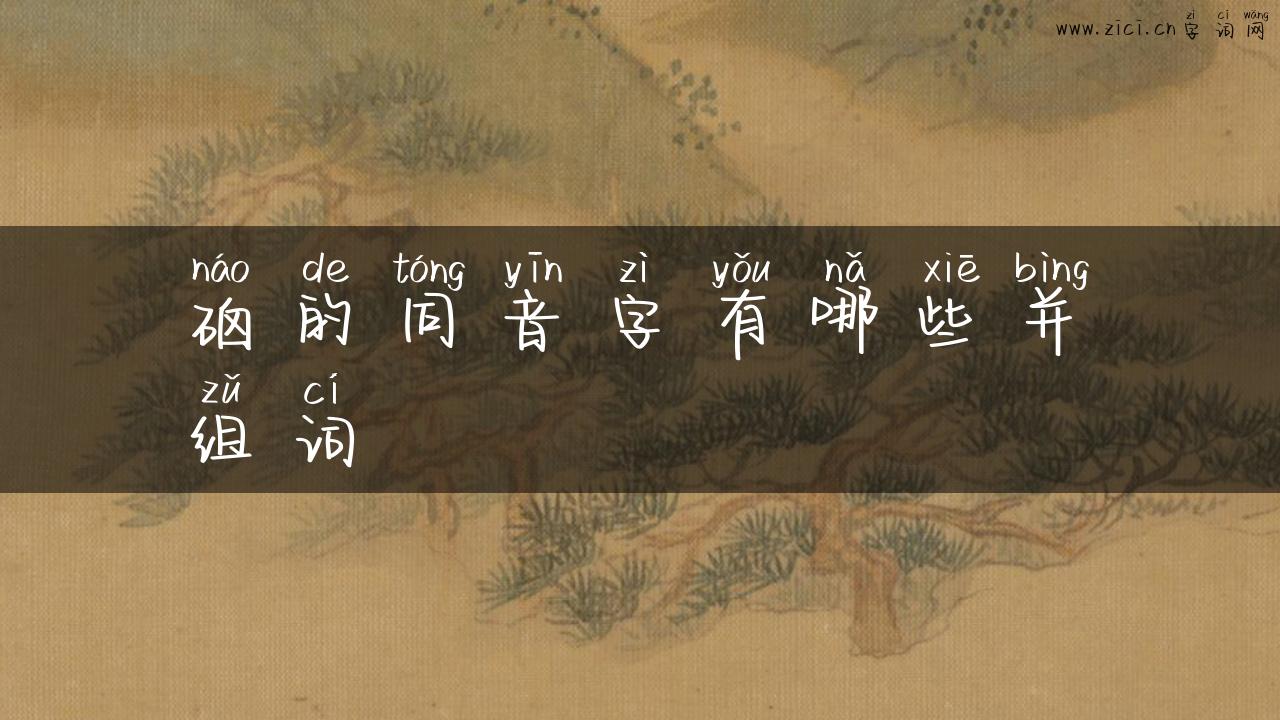 zì cí wǎng
www.zici.cn 字词网
náo de tóng yīn zì yǒu nǎ xiē bìng
硇的同音字有哪些并
zǔ cí
组词